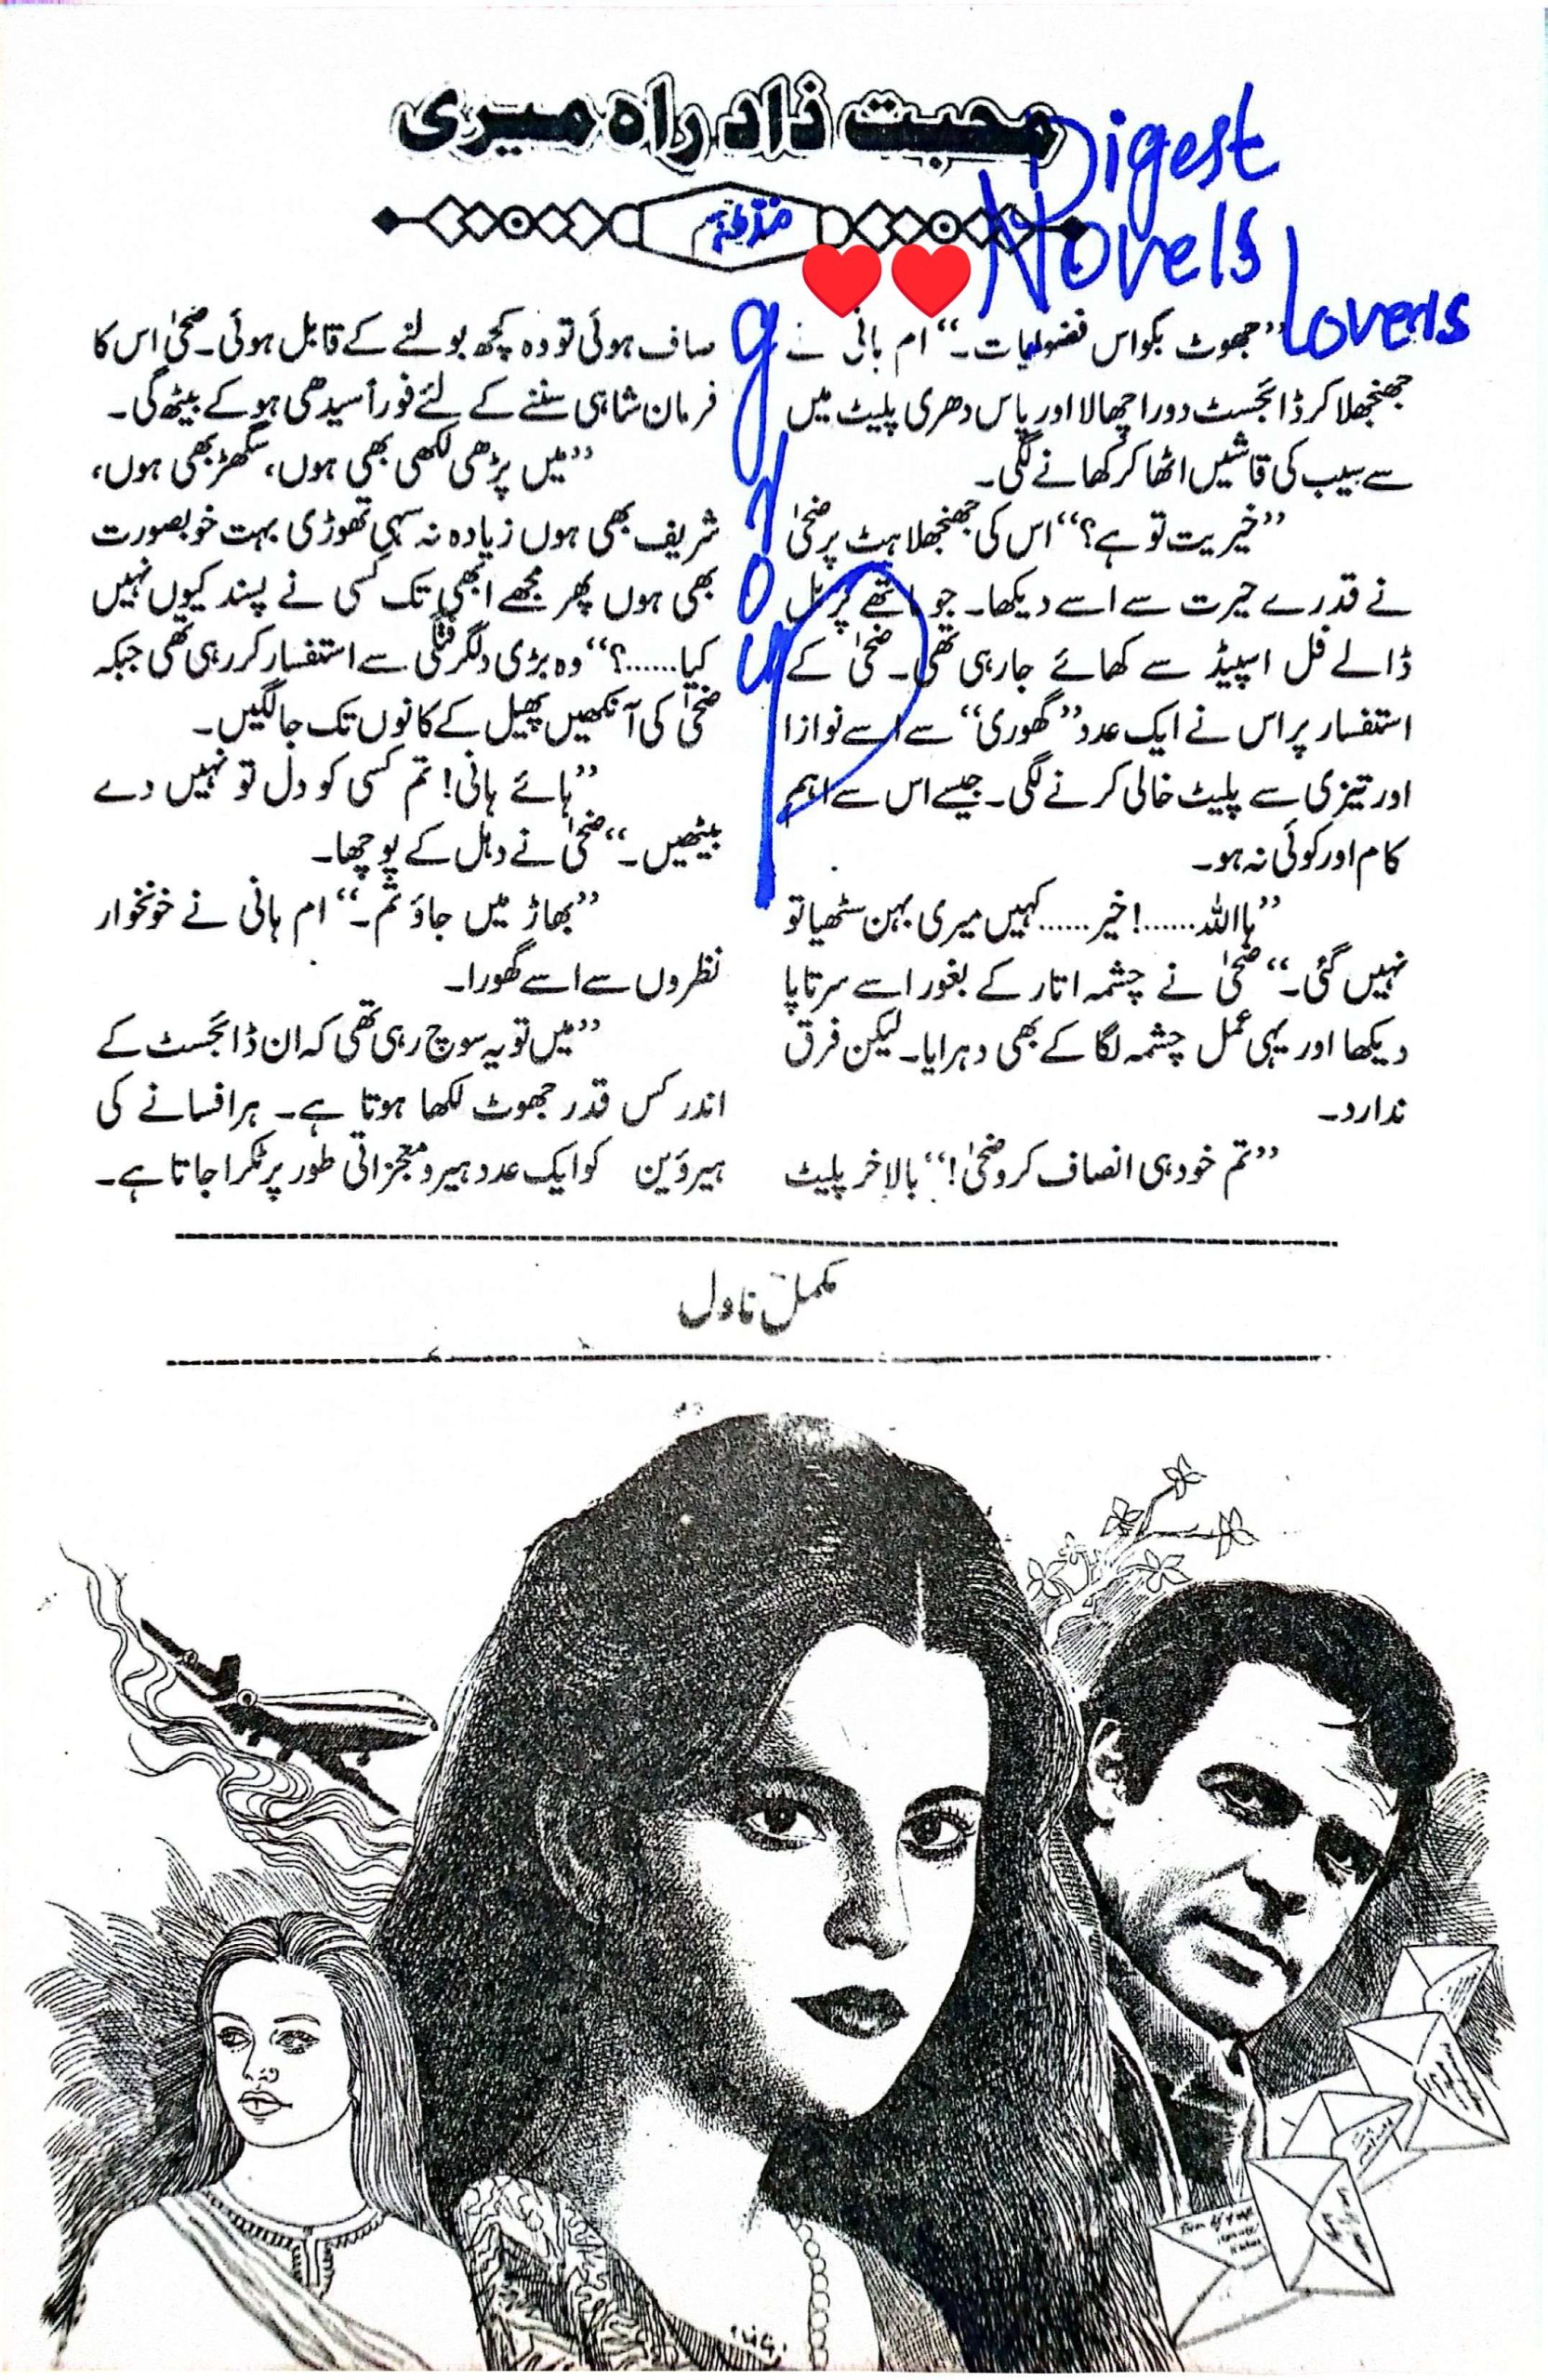 محبت زاد راہ میری
Digest
Novels
lovers
group
”جھوٹ بکواس فضولیات۔“ ام ہانی نے
جھنجھلا کر ڈائجسٹ دور اچھالا اور پاس دھری پلیٹ میں
سے سیب کی قاشیں اٹھا کر کھانے لگی۔
”خیریت تو ہے؟“ اس کی جھنجھلاہٹ پر ضحیٰ
نے قدرے حیرت سے اسے دیکھا۔ جو ماتھے پر بل
ڈالے فل اسپیڈ سے کھائے جارہی تھی۔ ضحیٰ کے
استفسار پر اس نے ایک عدد ”گھوری“ سے اسے نوازا
اور تیزی سے پلیٹ خالی کرنے لگی۔ جیسے اس سے اہم
کام اور کوئی نہ ہو۔
”ہااللہ......! خیر...... کہیں میری بہن سٹھیا تو
نہیں گئی۔“ ضحیٰ نے چشمہ اتار کے بغور اسے سرتاپا
دیکھا اور یہی عمل چشمہ لگا کے بھی دہرایا۔ لیکن فرق
ندارد۔
”تم خود ہی انصاف کرو ضحیٰ!“ بالاخر پلیٹ
صاف ہوئی تو وہ کچھ بولنے کے قابل ہوئی۔ ضحیٰ اس کا
فرمان شاہی سننے کے لئے فوراً سیدھی ہو کے بیٹھ گی۔
”میں پڑھی لکھی بھی ہوں، سگھڑ بھی ہوں،
شریف بھی ہوں زیادہ نہ سہی تھوڑی بہت خوبصورت
بھی ہوں پھر مجھے ابھی تک کسی نے پسند کیوں نہیں
کیا......؟“ وہ بڑی دلگرفتگی سے استفسار کررہی تھی جبکہ
ضحیٰ کی آنکھیں پھیل کے کانوں تک جا لگیں۔
”ہائے ہانی! تم کسی کو دل تو نہیں دے
بیٹھیں۔“ ضحیٰ نے دہل کے پوچھا۔
”بھاڑ میں جاؤ تم۔“ ام ہانی نے خونخوار
نظروں سے اسے گھورا۔
”میں تو یہ سوچ رہی تھی کہ ان ڈائجسٹ کے
اندر کس قدر جھوٹ لکھا ہوتا ہے۔ ہر افسانے کی
ہیروئین کو ایک عدد ہیرو معجزاتی طور پر ٹکرا جاتا ہے۔
مکمل ناول